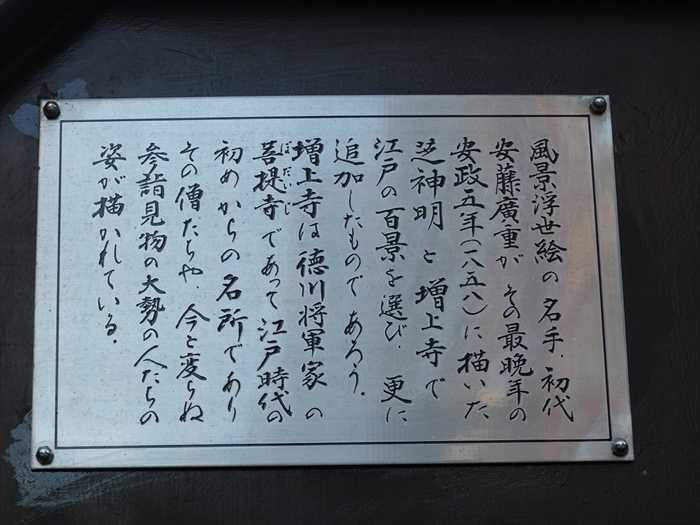 風景浮世絵の名手、初代
安藤廣重がその最晩年の
安政五年(一八五八)に描いた
芝神明と増上寺で
江戸の百景を選び、更に
追加したものであろう。
増上寺は徳川将軍家の
菩提寺であって江戸時代の
ぼだいじ
初めからの名所であり
その僧たちや、今と変らぬ
参詣見物の大勢の人たちの
姿が描かれている。